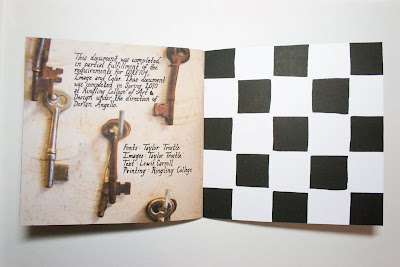 This document was completed
in partial fulfillment of the
requirements for CORE 104,
Image and Color. This document
was completed in Spring 2010
at Ringling College of Art &
Design under the direction of
Dorian Angello.
Fonts: Taylor Trostle
Images: Taylor Trostle
Text: Lewis Carroll
Printing: Ringling College